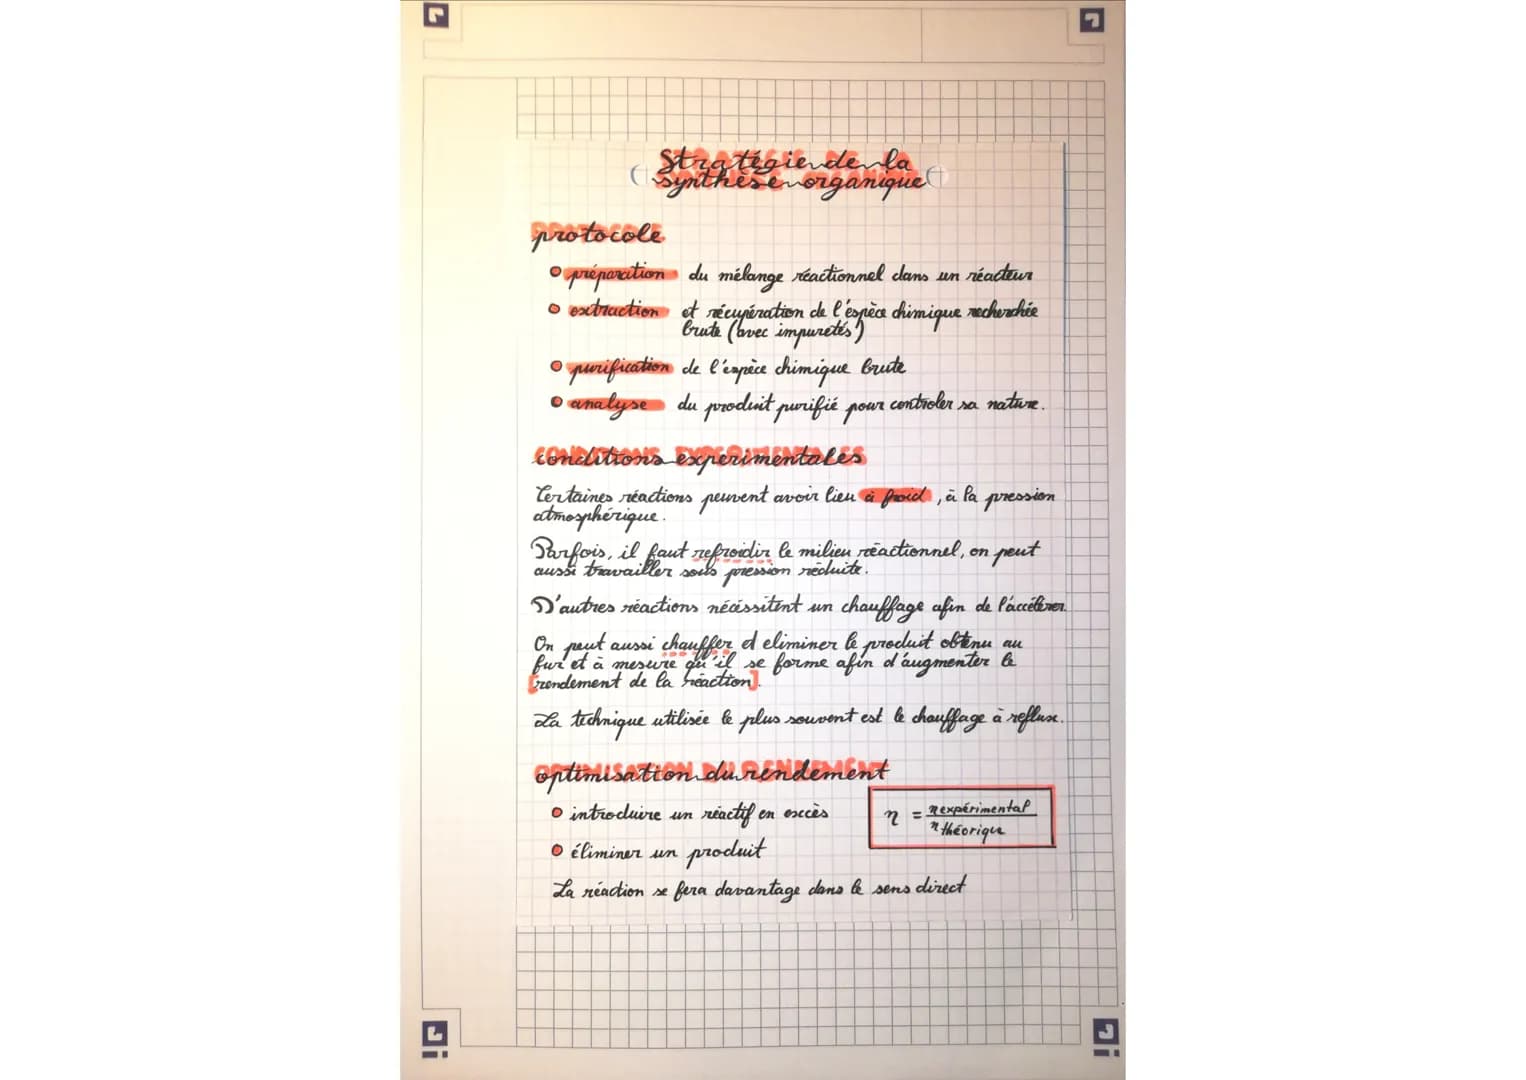 Stratégie de la
synthèse organique
protocole
préparation du mélange réactionnel dans un réacteur
extraction et récupération de l'espèce chimique recherchée
brute (avec impuretés)
purification de l'espèce chimique brute
analyse du produit purifié pour contrôler sa nature.
conditions experimentales
Certaines réactions peuvent avoir lieu à froid, à la pression
atmosphérique.
Parfois, il faut refroidir le milieu réactionnel, on peut
aussi travailler sous pression réduite.
D'autres réactions nécéssitent un chauffage afin de l'accélerer.
On peut aussi chauffer et eliminer le produit obtenu au
fur et à mesure qu'il se forme afin d'augmenter le
[rendement de la réaction].
La technique utilisée le plus souvent est le chauffage à reflux.
optimisation du rendement
introduire un réactif en excès
η = n expérimental
n théorique
éliminer un produit
La réaction se fera davantage dans le sens direct